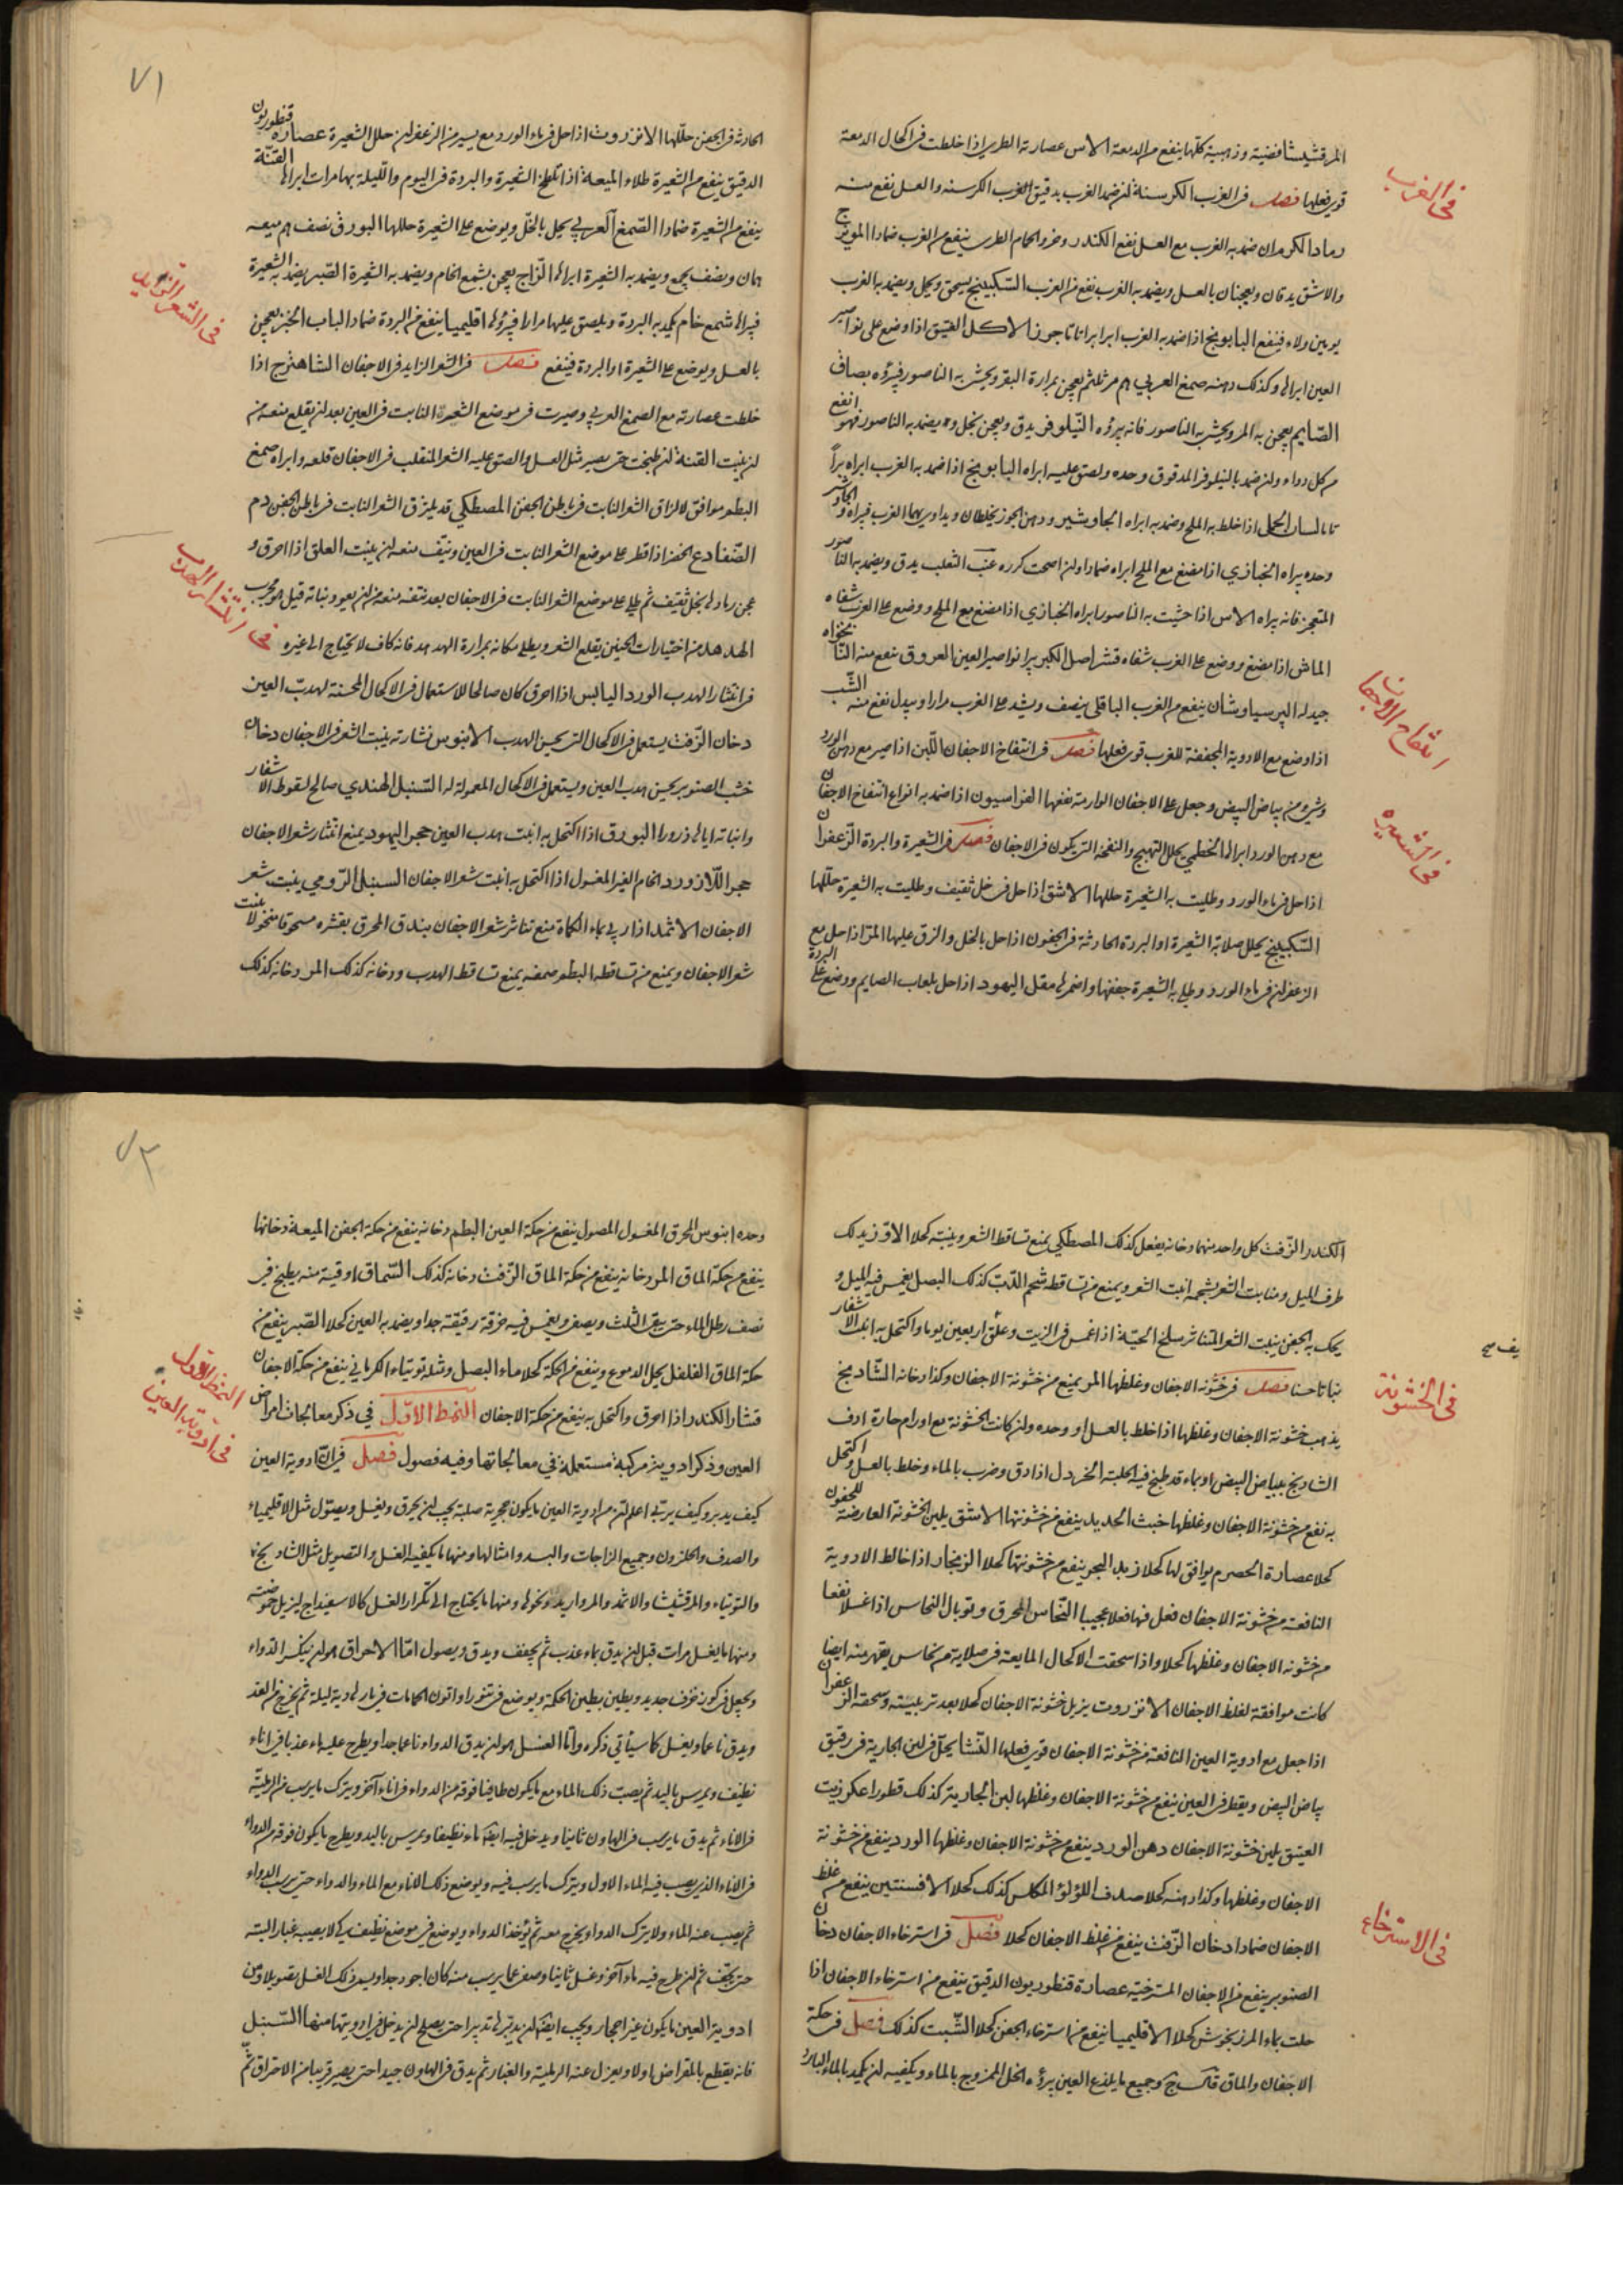 في الغرب
المرقشيشا فضية وذهبية كلها ينفع من الدمعة الآس عصارته الطري اذا خلطت في اكحال الدمعة
قوي فعلها فصل في الغرب الكرسنة ان ضمد الغرب بدقيق الكرسنة والعسل نفع منه
رماد الكرم ان ضمد به الغرب مع العسل نفع الكندر وخرو الحمام الطري ينفع من الغرب ضمادا الميويزج
والاشق يدقان ويعجنان بالعسل ويضمد به الغرب نفع من الغرب السكبينج يسحق ويحل ويضمد به الغرب
يومين ولاء فينفع البابونج اذا ضمد به الغرب ابرا براتا تاما جوز الاكل العتيق اذا وضع على نواصير
العين ابراها وكذلك دهنه صمغ العربي مر مثله ثم يعجن بمرارة البقر ويحشى به الناصور فيبرؤه بصاق
الصايم يعجن به المر ويحشى به الناصور فانه يبرؤه النيلوفر يدق ويعجن بخل ويضمد به الناصور فهو انفع
من كل دواء وان ضمد بالنيلوفر المدقوق وحده ولصق عليه ابراه البابونج اذا ضمد به الغرب ابراه برأ
تاما لسان الحمل اذا خلط به الملح وضمد به ابراه الجاوشير ودهن الجوز يخلطان ويداوى بهما الغرب فيبراه والجاوشير
وحده يبراه الخبازي اذا مضغ مع الملح ابراه ضمادا وان اصحت كرره عنب الثعلب يدق ويضمد به الناصور
المتفجر فانه يبراه الآس اذا حشيت به الناصور ابراه الخبازي اذا مضغ مع الملح ووضع على الغرب شفاه
الماش اذا مضغ ووضع على الغرب شفاه قشر اصل الكبر يبرا نواصير العين العروق ينفع منه
جيد له البرسياوشان ينفع من الغرب الباقلى ينصف ويشد على الغرب مرارا ويبدل نفع منه الشب
اذا وضع مع الادوية المجففة للغرب قوي فعلها فصل في انتفاخ الاجفان اللبن اذا صير مع دهن الورد
وشيء من بياض البيض وجعل على الاجفان الوارمة نفعها الفراسيون اذا ضمد به انواع انتفاخ الاجفان
مع دهن الورد ابراها الخطمي يحلل التهيج والنفخة التي يكون في الاجفان فصل في الشعيرة والبردة الزعفران
اذا حل في ماء الورد وطليت به الشعيرة حللها الاشق اذا حل في خل ثقيف وطليت به الشعيرة حللها
السكبينج يحلل صلابة الشعيرة او البردة الحادثة في الجفون اذا حل بالخل والزق عليها المر اذا حل مع
الزعفران في ماء الورد وطلي به الشعيرة جففها واضمرها مقل اليهود اذا حل بلعاب الصايم ووضع على البردة
انتفاخ الاجفان
في الشعيرة
٧١
الحادثة في الجفن حللها الانزروت اذا حل في ماء الورد مع يسير من الزعفران حلل الشعيرة عصارة قنطوريون
الدقيق ينفع من الشعيرة طلاء الميعة اذا تلطخ الشعيرة والبردة في اليوم والليلة بها مرات ابراها القنّة
ينفع من الشعيرة ضمادا الصمغ العربي يحل بالخل ويوضع على الشعيرة حللها البورق نصف درهم ميعه
ونصف يجمع ويضمد به الشعيرة ابراها الزاج يعجن بشمع الخام ويضمد به الشعيرة الصبر يضمد به الشعيرة
فيبراها شمع خام يكمد به البردة ويلصق عليها مرارا فيبرؤها اقليميا ينفع من البردة ضمادا لباب الخبز يعجن
بالعسل ويوضع على الشعيرة او البردة فينفع فصل في الشعر الزايد في الاجفان الشاهترج اذا
خلطت عصارته مع الصمغ العربي وصيرت في موضع الشعرة النابت في العين بعد ان يقلع منعه من
ان ينبت القنة ان طبخت حتى يصير مثل العسل والصق عليه الشعر المنقلب في الاجفان قلعه وابراه صمغ
البطم موافق لالزاق الشعر النابت في باطن الجفن المصطكي قد يلزق الشعر النابت في باطن الجفن دم
الضفادع الخضر اذا قطر على موضع الشعر النابت في العين وينتف منعه ان ينبت العلق اذا احرق و
عجن رمادها بخل ثقيف ثم طلي على موضع الشعر النابت في الاجفان بعد نتفه منعه من ان يعود ونباته قيل هو مجرب
الهدهد من اختيارات الحنين يقلع الشعر ويطلي مكانه بمرارة الهدهد فانه كاف لا يحتاج الى غيره
في انتثار الهدب الورد اليابس اذا احرق كان صالحا للاستعمال في الاكحال المحسنة لهدب العين
دخان الزفت يستعمل في الاكحال التي يحسن الهدب الابنوس نشارته ينبت الشعر في الاجفان دخان
خشب الصنوبر يحسن هدب العين ويستعمل في الاكحال المعمولة له السنبل الهندي صالح لسقوط الاشفار
وانباته اياها ذرورا البورق اذا اكتحل به انبت هدب العين حجر اليهود يمنع انتثار شعر الاجفان
حجر اللازورد الخام الغير المغسول اذا اكتحل به انبت شعر الاجفان السنبل الرومي ينبت شعر
الاجفان الاثمد اذا ربي بماء الكماة منع تناثر شعر الاجفان بندق المحرق بقشره مسحوقا منخولا ينبت
شعر الاجفان ويمنع من تساقطه البطم صمغه يمنع تساقط الهدب ودخانه كذلك المر دخانه كذلك
في الشعر الزايد
في انتثار الهدب
الكندر الزفت كل واحد منهما دخانه يفعل كذلك المصطكي يمنع تساقط الشعر وينبته كحلا
طرف الميل ومنابت الشعر بشحمه انبت الشعر ويمنع من تساقطه شحم الدب كذلك البصل يغمس فيه الميل و
يحك به الجفن ينبت الشعر المتناثر سلخ الحية اذا غمس في الزيت وعلق اربعين يوما واكتحل به انبت الاشفار
نباتا حسنا فصل في خشونة الاجفان وغلظها المر يمنع من خشونة الاجفان وكذا دخانه الشادنج
يذهب خشونة الاجفان وغلظها اذا خلط بالعسل او وحده وان كانت الخشونة مع اورام حارة ادف
الشادنج ببياض البيض او بماء قد طبخ فيه الحلبة الخردل اذا دق وضرب بالماء وخلط بالعسل واكتحل
به نفع من خشونة الاجفان وغلظها خبث الحديد ينفع من خشونتها الاشق يلين الخشونة العارضة للجفون
كحلا عصارة الحصرم يوافق لها كحلا زبد البحر ينفع من خشونتها كحلا الزنجار اذا خالط الادوية
النافعة من خشونة الاجفان فعل فيها فعلا عجيبا النحاس المحرق وتوبال النحاس اذا غسلا نفعا
من خشونة الاجفان وغلظها كحلا واذا سحقت الاكحال المايعة في صلاية من نحاس ايضا
كانت موافقة لغلظ الاجفان الانزروت يزيل خشونة الاجفان كحلا بعد تربيته وسحقه الزعفران
اذا جعل مع ادوية العين النافعة من خشونة الاجفان قوي فعلها النشا يحل في لبن الجارية في رقيق
بياض البيض ويقطر في العين ينفع من خشونة الاجفان وغلظها لبن الجارية كذلك قطورا عكر زيت
العتيق يلين خشونة الاجفان دهن الورد ينفع من خشونة الاجفان وغلظها الورد ينفع من خشونة
الاجفان وغلظها وكذا دهنه كحلا صدف اللؤلؤ المكلس كذلك كحلا الافسنتين ينفع من غلظ
الاجفان ضمادا دخان الزفت ينفع من غلظ الاجفان كحلا فصل في استرخاء الاجفان دخان
الصنوبر ينفع من الاجفان المسترخية عصارة قنطوريون الدقيق ينفع من استرخاء الاجفان اذا
حلت بماء المرزنجوش كحلا الاقليميا ينفع من استرخاء الجفن كحلا الشبت كذلك فصل في حكة
الاجفان والماق وجميع ما يلذع العين يبرؤه الخل الممزوج بالماء ويكفيه ان يكمد بالماء البارد
في الخشونة
في الاسترخاء
٧٢
وحده ابنوس المحرق المغسول المصول ينفع من حكة العين البطم دخانه ينفع من حكة الجفن الميعة دخانها
ينفع من حكة الماق المر دخانه ينفع من حكة الماق الزفت دخانه كذلك السماق اوقية منه يطبخ في
نصف رطل الماء حتى يبقى الثلث ويصفى ويغمس فيه خرقة رقيقة جدا ويضمد به العين كحلا الصبر ينفع من
حكة الماق الفلفل يحل الدموع وينفع من الحكة كحلا ماء البصل ومثله توتياء الكرماني ينفع من حكة الاجفان
قشار الكندر اذا احرق واكتحل به ينفع من حكة الاجفان النمط الاول في ذكر معالجات امراض
العين وذكر ادوية مركبة مستعملة في معالجاتها وفيه فصول فصل في ان ادوية العين
كيف يدبر وكيف يربى اعلم ان من ادوية العين ما يكون حجرية صلبة يجب ان يحرق ويغسل ويصول مثل الاقليمياء
والصدف والحلزون وجميع الزاجات والبسد وامثالها ومنها ما يكفيه الغسل والتصويل مثل الشادنج
والتوتياء والمرقشيشا والاثمد والمرواريد ونحوها ومنها ما يحتاج الى تكرار الغسل كالاسفيداج ليزيل حموضته
ومنها ما يغسل مرات قبل ان يدق بماء عذب ثم يجفف ويدق ويصول اما الاحراق هو ان يكسر الدواء
ويجعل في كوز خزف جديد ويطين بطين الحكمة ويوضع في تنور او اتون الحمامات في نار هادية ليلة ثم يخرج من الغد
ويدق ناعما ويغسل كما سيأتي ذكره واما الغسل هو ان يدق الدواء ناعما جدا ويطرح عليه ماء عذبا في اناء
نظيف ويمرس باليد ثم يصب ذلك الماء مع ما يكون طافيا فوقه من الدواء في اناء آخر ويترك ما يرسب من الرملية
في الاناء ثم يدق ما يرسب في الهاون ثانيا ويدخل فيه ايضا ماء نظيفا ويمرس باليد ويطرح ما يكون فوقه من الدواء
في الاناء الذي يصب فيه الماء الاول ويترك ما يرسب فيه ويوضع ذلك الاناء مع الماء والدواء حتى يرسب الدواء
ثم يصب عنه الماء ولا يترك الدواء يخرج معه ثم يؤخذ الدواء ويوضع في موضع نظيف كيلا يصيبه غبار البتة
حتى يجف ثم ان طرح فيه ماء آخر وغسل ثانيا وصفي عما يرسب منه كان اجود جدا ويسمى ذلك الغسل تصويلا ومن
ادوية العين ما يكون غير احجار ويجب ايضا ان يدبر لها تدبيرا حتى يصلح ان يدخل في ادويتها منها السنبل
فانه يقطع بالمقراض اولا ويعزل عنه الرملية والغبار ثم يدق في الهاون جيدا حتى يصير قريبا من الاحتراق ثم
النمط الاول
في ادوية العين